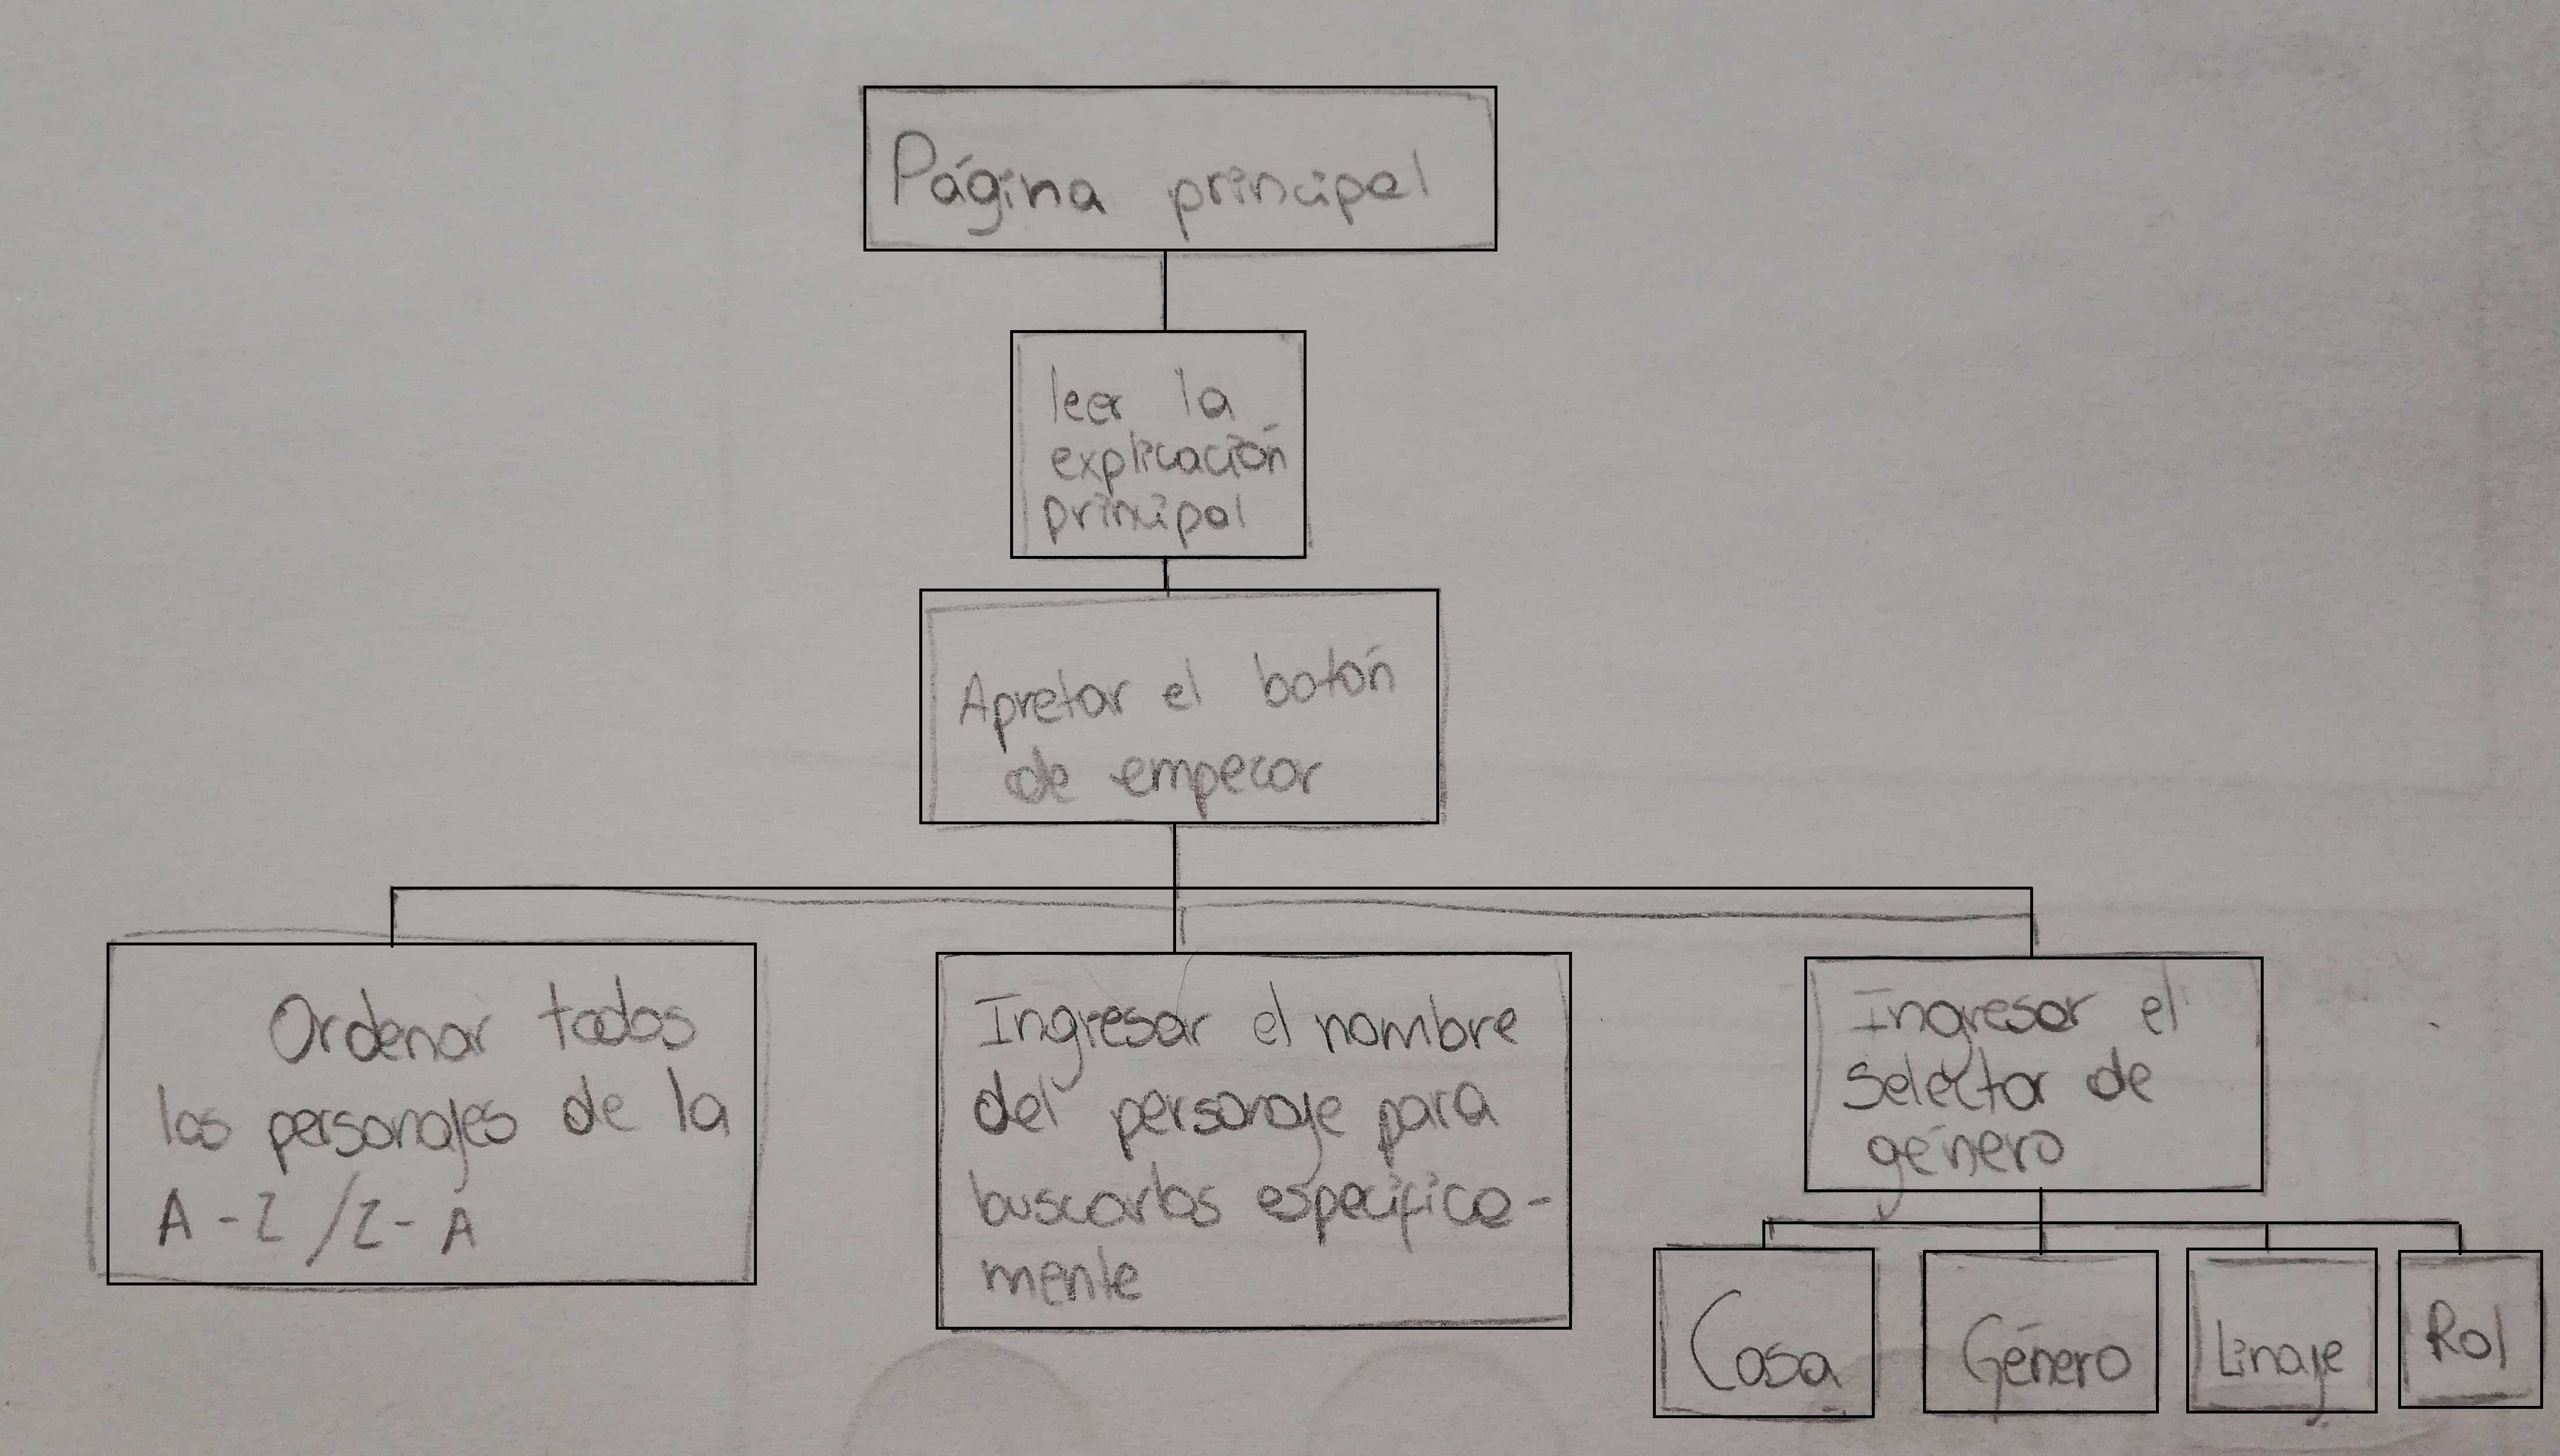 Página principal
leer la
explicación
principal
Apretar el botón
de empezar
Ordenar todos
los personajes de la
A - Z / Z - A
Ingresar el nombre
del personaje para
buscarlos específica-
mente
Ingresar el
selector de
género
Casa
Género
Linaje
Rol